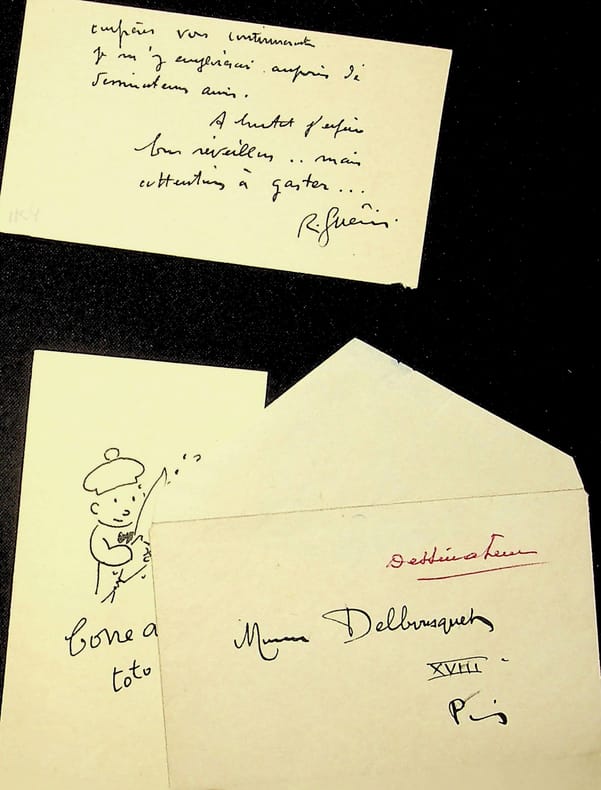 confrères vous
je m'y emploierai auprès de
dessinateurs amis.
A bientot j'espère
bon réveillon .. mais
attention à gaster...
R. Guérin.
Bonne a
toto
Dessinateur
Delbousquet
XVIII
Paris